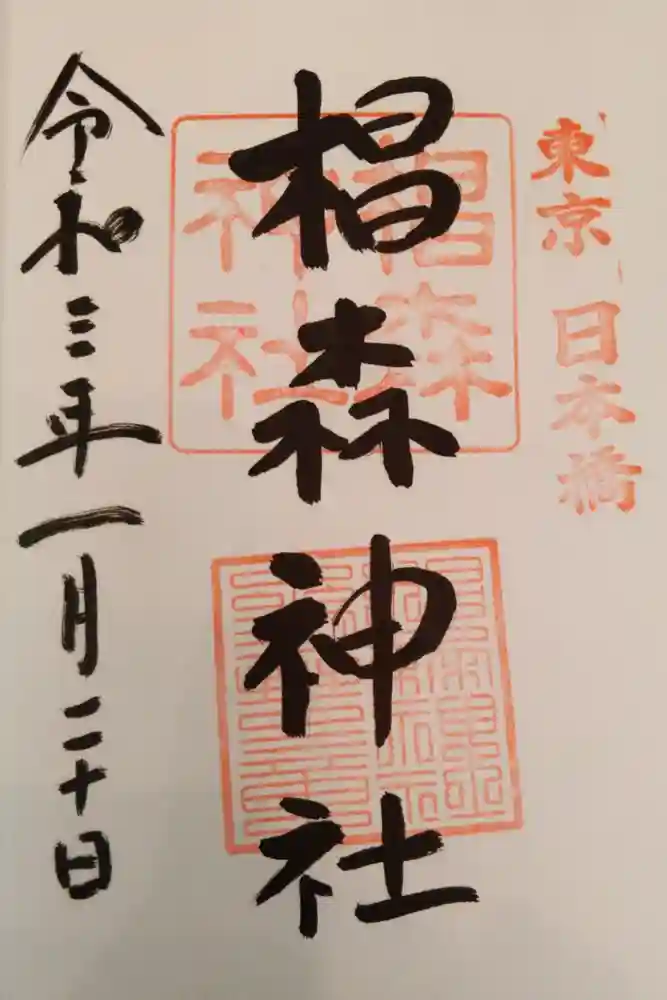 東京 日本橋
椙森神社
椙森
神社
令和三年一月二十日